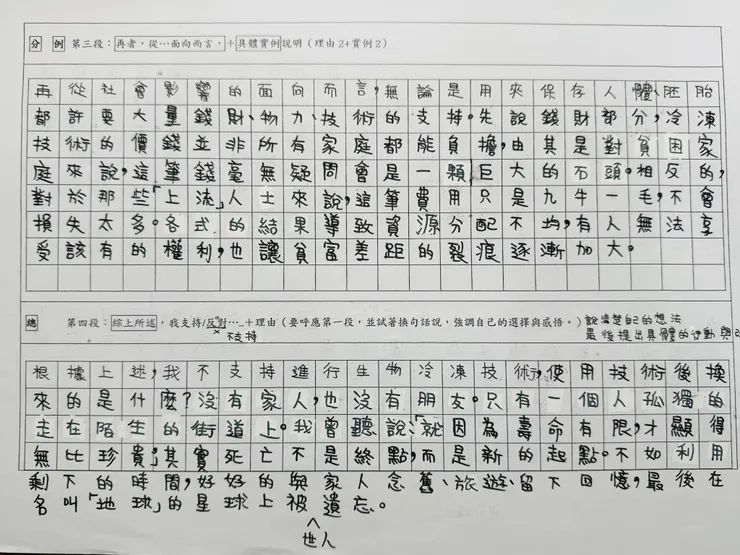 分 例 第三段：再者，從…面向而言，＋具體實例說明（理由2+實例2）
再從社會影響的面向而言，無論是用來保存人體、胚胎
都許要大量錢財、物力、技術的支持。先說錢財部分，冷凍
技術的價錢並非所有家庭都能負擔，由其是對貧困家
庭來說，這筆錢毫無疑問會是一顆巨大的石頭。相反的，
對於那些「上流」人士來說，這筆費用只是九牛一毛，不會
損失太多。各式的結果導致資源分配不均，有人無法享
受該有的權利，也讓貧富差距的裂痕逐漸加大。
總 第四段：綜上所述，我支持/反對…..＋理由（要呼應第一段，並試著換句話說，強調自己的選擇與感悟。）說清楚自己的想法
不支持 最後提出具體的行動與
根據上述，我不支持進行生物冷凍技術，使用技術後換
來的是什麼？沒有家人，也沒有朋友。只有一個人孤獨的
走在陌生的街道上。我曾聽說：「就因為壽命有限，才顯得
無比珍貴」，其實死亡不是終點，而是新的起點。不如利用
剩下的時間，好好的與家人念舊、旅遊、留下回憶，最後在
名叫「地球」的星球上被遺忘。
世人